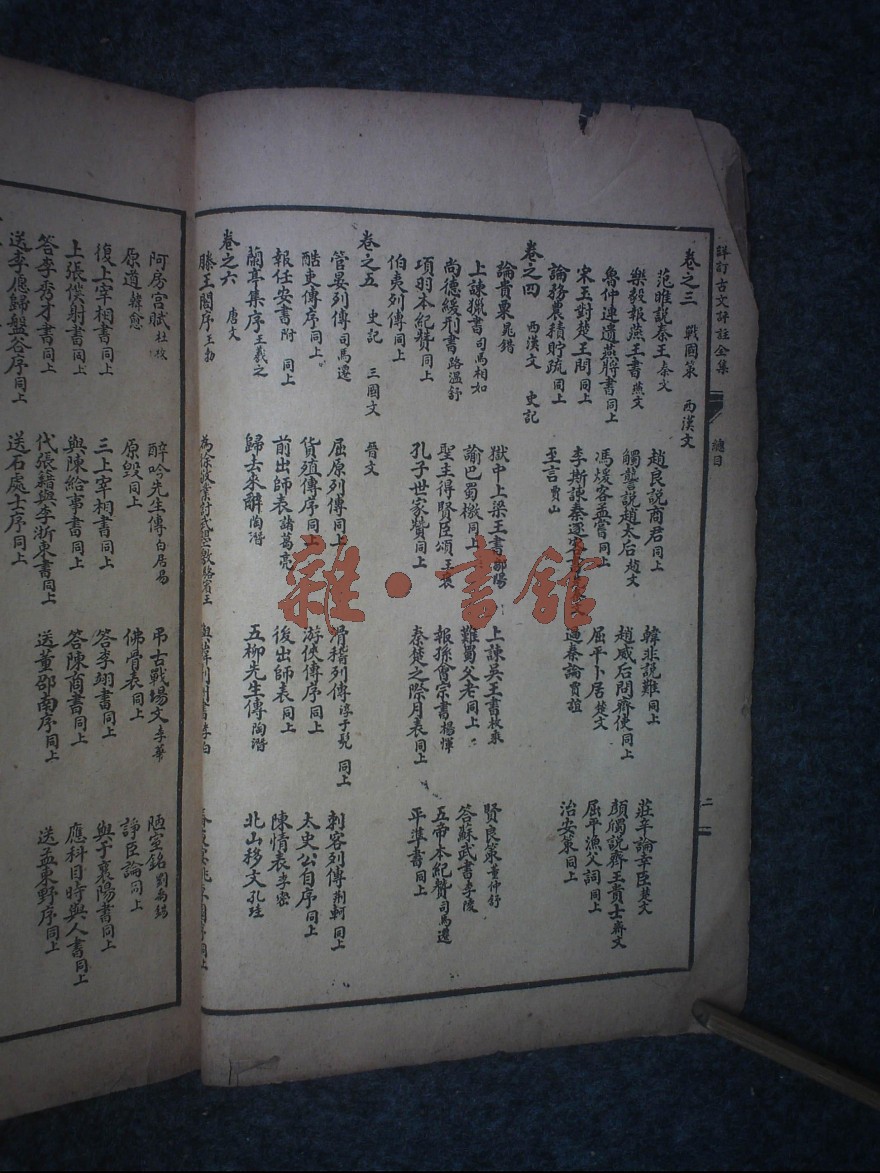 詳訂古文評註全集
總目
二
卷之三 戰國策 西漢文
范雎說秦王秦文 趙良說商君同上 韓非說難同上 莊辛論幸臣楚文
樂毅報燕王書燕文 觸讋說趙太后趙文 趙威后問齊使同上 顏斶說齊王貴士齊文
魯仲連遺燕將書同上 馮煖客孟嘗同上 屈平卜居楚文 屈平漁父詞同上
宋玉對楚王問同上 李斯諫秦逐 過秦論賈誼 治安策同上
論務農積貯疏同上 至言賈山
卷之四 西漢文 史記
論貴粟晁錯 獄中上梁王書鄒陽 上諫吳王書枚乘 賢良策董仲舒
上諫獵書司馬相如 諭巴蜀檄同上 難蜀父老同上 答蘇武書李陵
尚德緩刑書路溫舒 聖主得賢臣頌王褒 報孫會宗書楊惲 五帝本紀贊司馬遷
項羽本紀贊同上 孔子世家贊同上 秦楚之際月表同上 平準書同上
伯夷列傳同上
卷之五 史記 三國文 晉文
管晏列傳司馬遷 屈原列傳同上 滑稽列傳淳于髡 同上 刺客列傳荆軻同上
酷吏傳序同上 貨殖傳序同上 游俠傳序同上 太史公自序同上
報任安書附 同上 前出師表諸葛亮 後出師表同上 陳情表李密
蘭亭集序王羲之 歸去來辭陶潛 五柳先生傳陶潛 北山移文孔珪
卷之六 唐文
滕王閣序王勃 為徐敬業討武曌檄駱賓王
阿房宮賦杜牧 醉吟先生傳白居易 弔古戰場文李華 陋室銘劉禹錫
原道韓愈 原毀同上 佛骨表同上 諍臣論同上
復上宰相書同上 三上宰相書同上 答李翊書同上 與于襄陽書同上
上張僕射書同上 與陳給事書同上 答陳商書同上 應科目時與人書同上
答李秀才書同上 代張籍與李浙東書同上 送董邵南序同上 送孟東野序同上
送李愿歸盤谷序同上 送石處士序同上
雜·書館